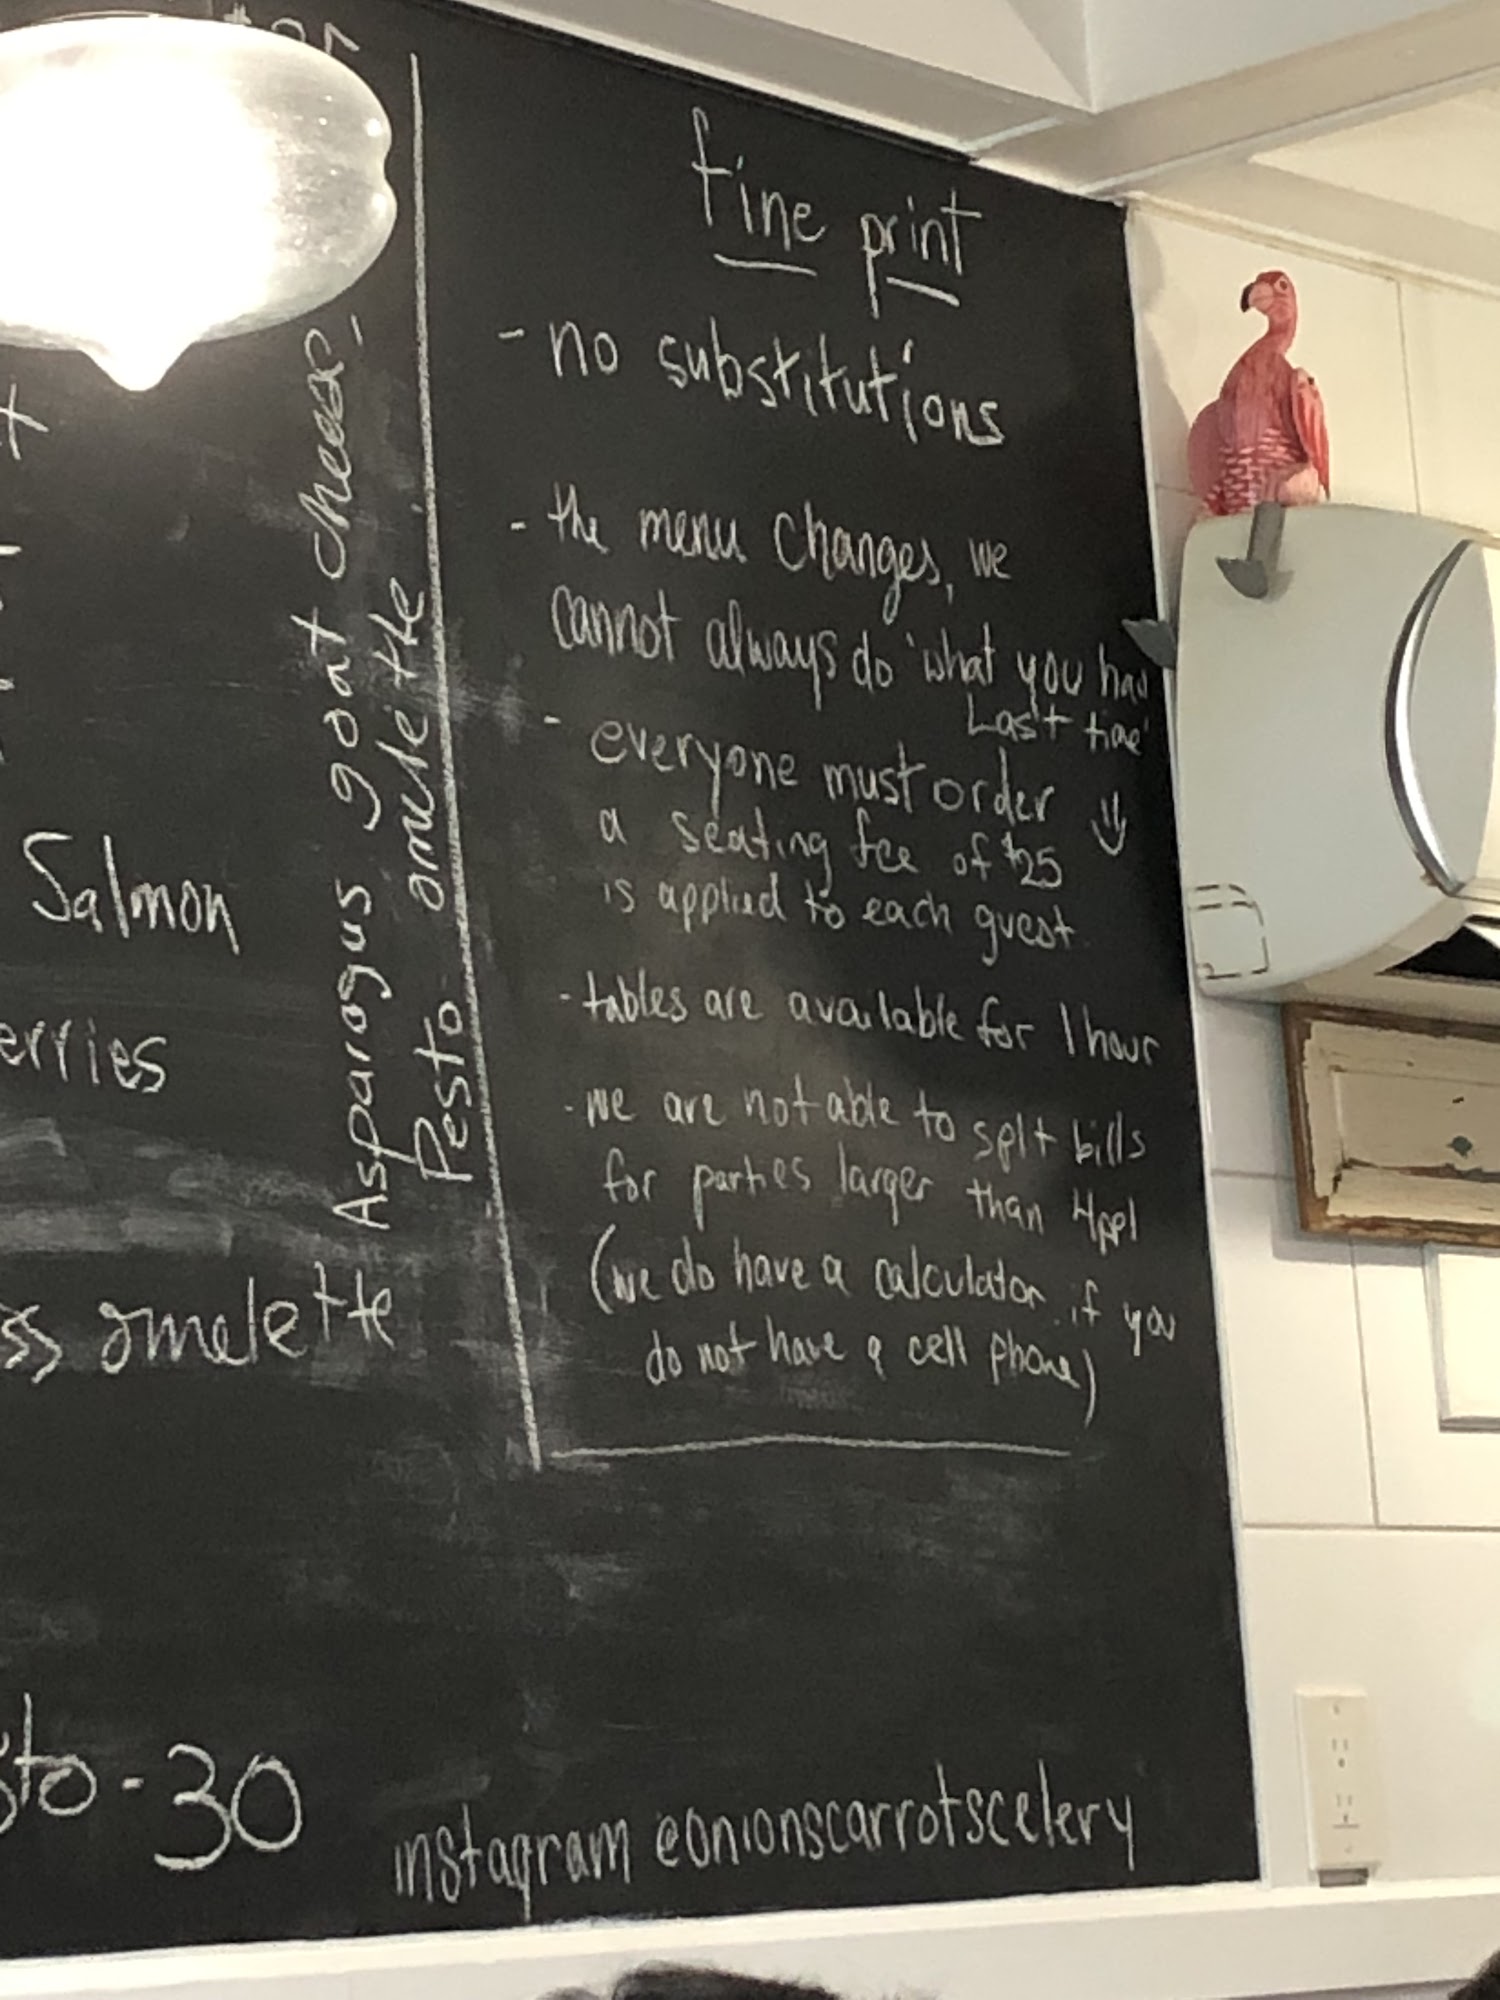 Salmon
erries
ss omelette
sto - 30
Asparagus goat cheese,
omelette
Pesto
fine print
- no substitutions
- the menu changes, we
cannot always do 'what you had
Last time'
- everyone must order
a seating fee of $25
is applied to each guest
- tables are available for 1 hour
- we are not able to split bills
for parties larger than 4ppl
(we do have a calculator if you
do not have a cell phone)
instagram @onionscarrotscelery